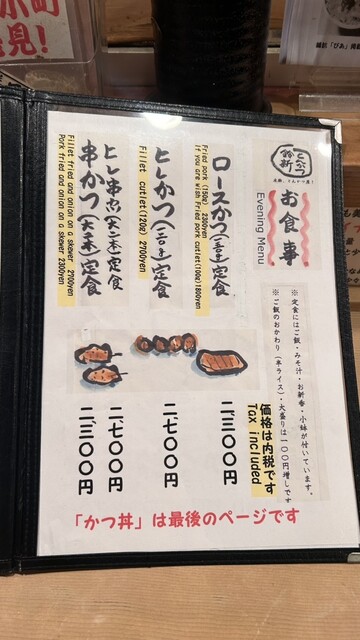 とんかつ
鈴新
お食事
Evening Menu
※ 定食にはご飯・みそ汁・お新香・小鉢が付いています。
※ ご飯のおかわり(半ライス)・大盛りは一〇〇円増しです
価格は内税です
Tax included
ロースかつ(百五十g)定食
Fried pork (150g) 2300yen
If you are wish Fried pork cutlet(100g)1800yen
二、三〇〇円
ヒレかつ(三百子)定食
Fillet cutlet(120g) 2700yen
二、七〇〇円
ヒレ串かつ(大二本)定食
Fillet fried and onion on a skewer 2700yen
二、七〇〇円
串かつ(大二本)定食
Pork fried and onion on a skewer 2300yen
二、三〇〇円
「かつ丼」は最後のページです
見!